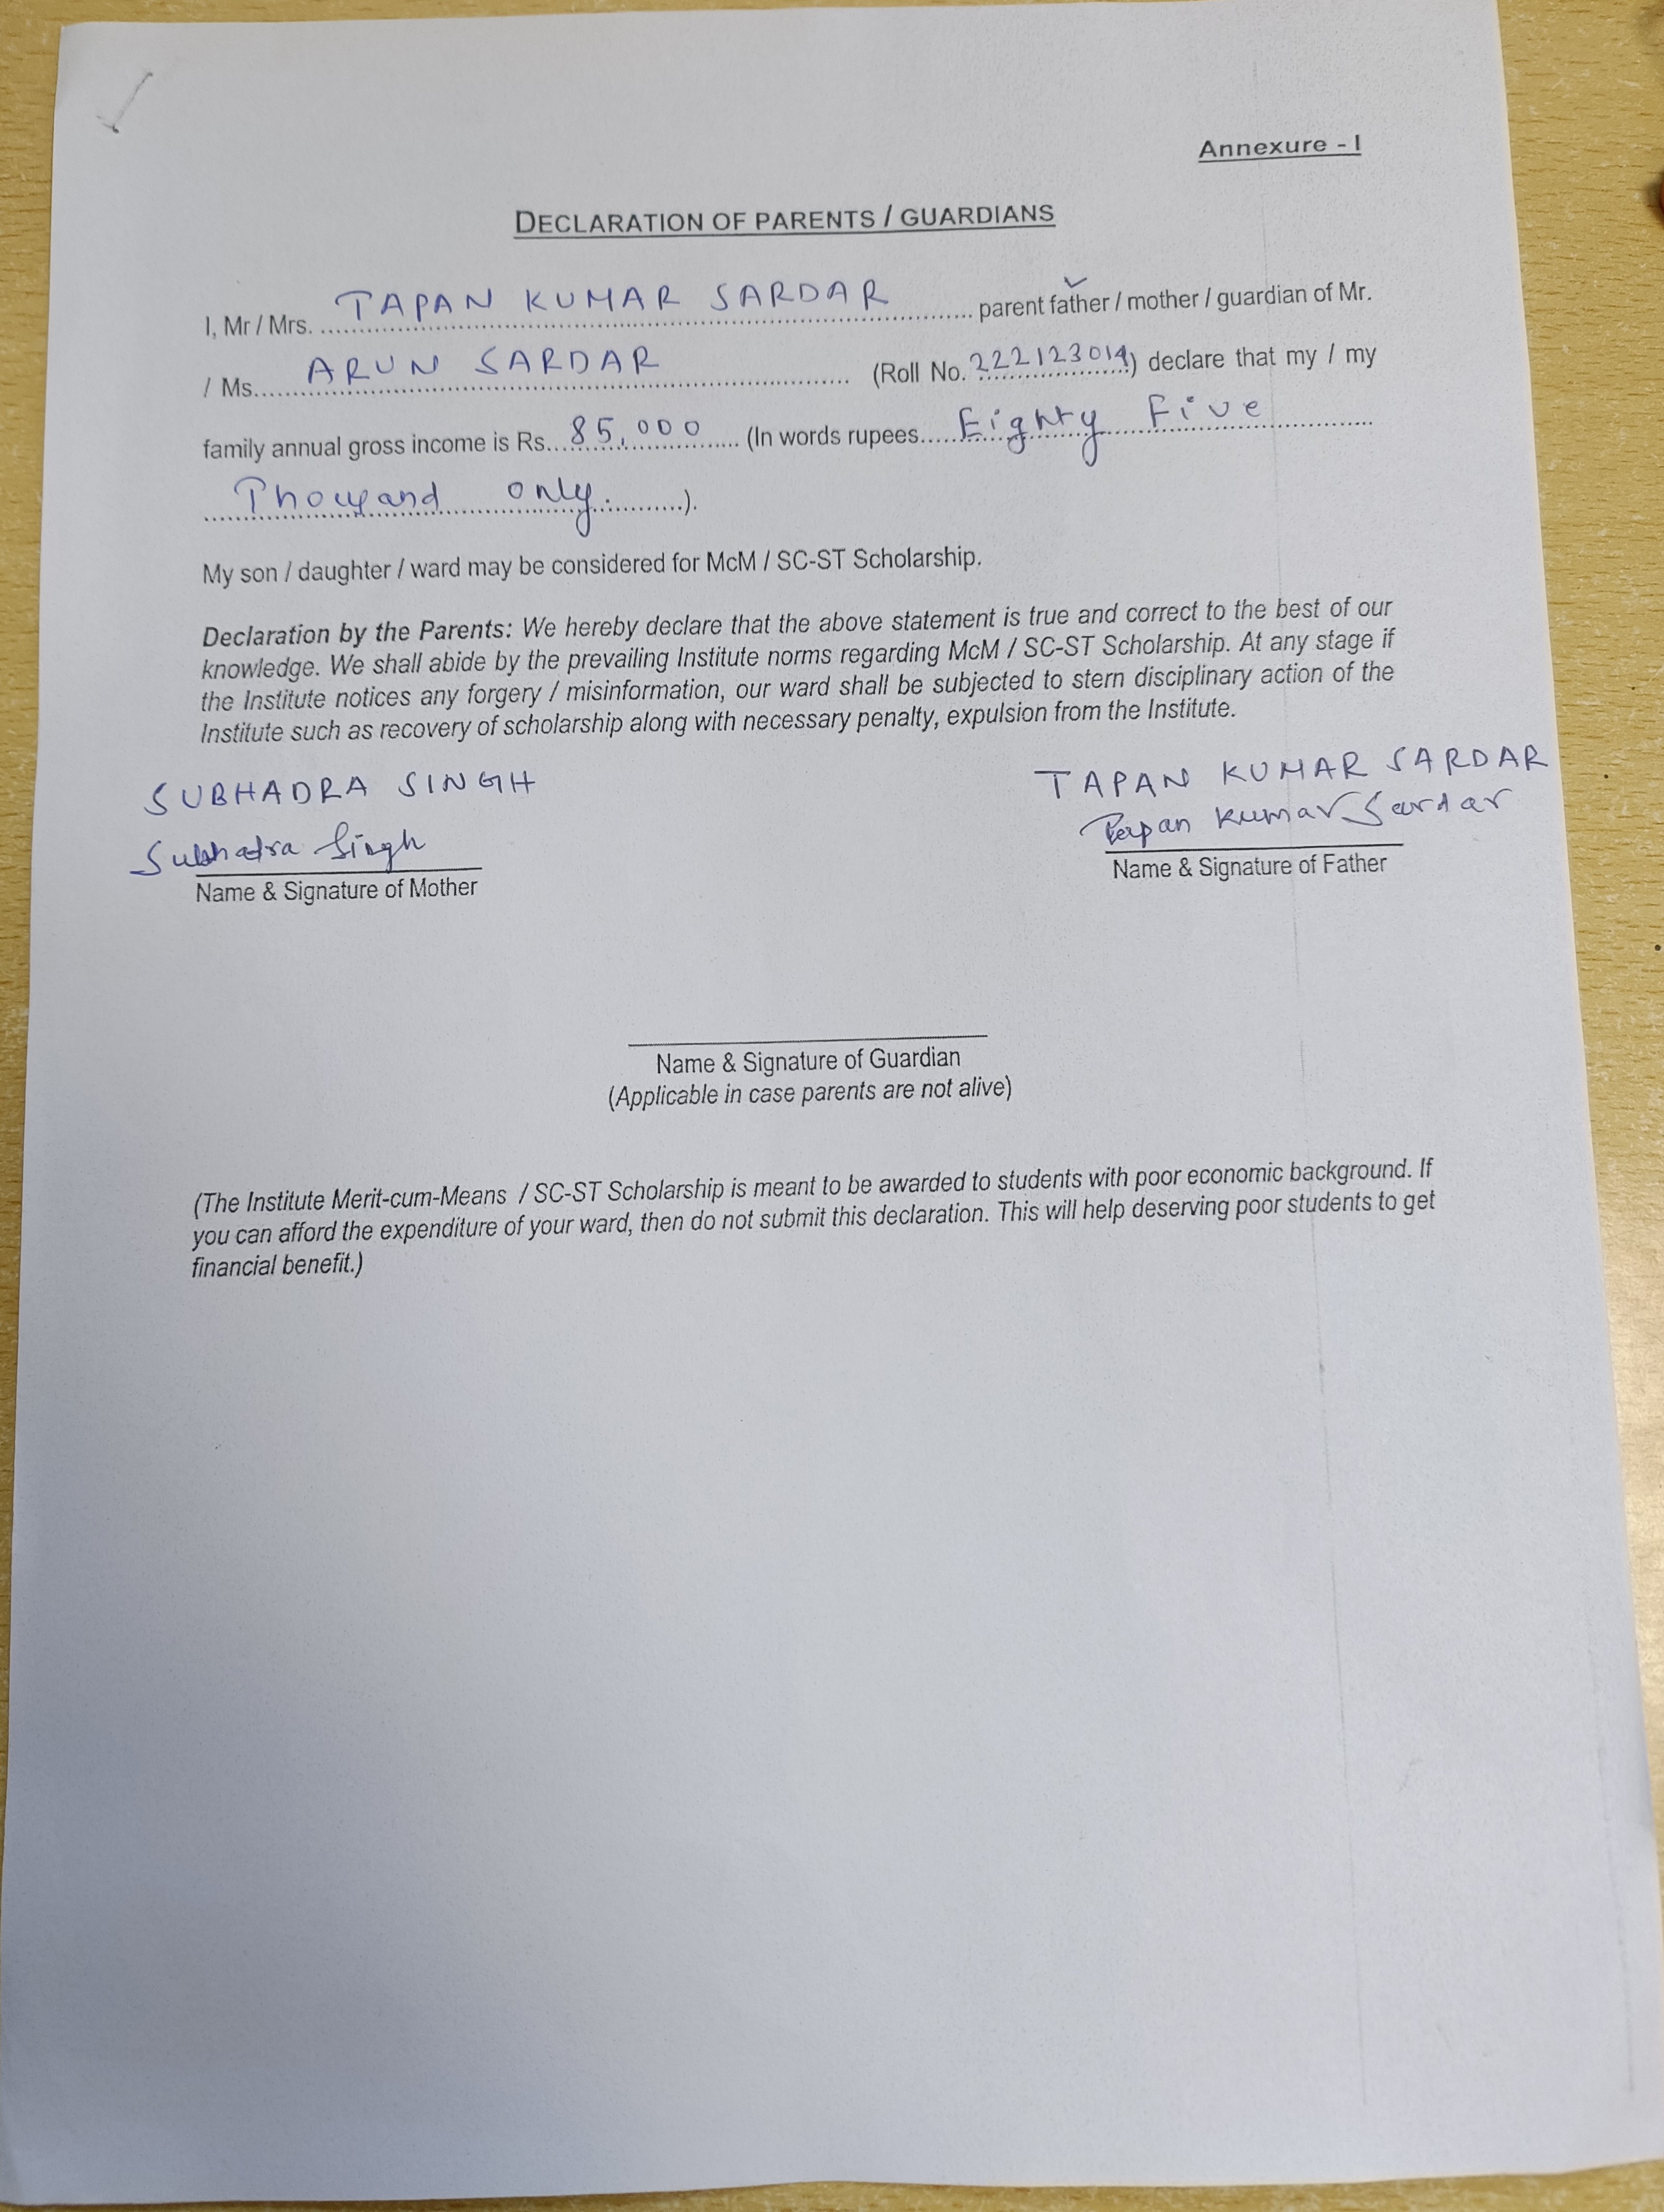 Annexure - I
DECLARATION OF PARENTS / GUARDIANS
I, Mr / Mrs. TAPAN KUMAR SARDAR parent father / mother / guardian of Mr.
/ Ms. ARUN SARDAR (Roll No. 222123014) declare that my / my
family annual gross income is Rs. 85,000 (In words rupees Eighty Five
Thousand only.).
My son / daughter / ward may be considered for McM / SC-ST Scholarship.
Declaration by the Parents: We hereby declare that the above statement is true and correct to the best of our
knowledge. We shall abide by the prevailing Institute norms regarding McM / SC-ST Scholarship. At any stage if
the Institute notices any forgery / misinformation, our ward shall be subjected to stern disciplinary action of the
Institute such as recovery of scholarship along with necessary penalty, expulsion from the Institute.
SUBHADRA SINGH
Subhadra Singh
Name & Signature of Mother
TAPAN KUMAR SARDAR
Tapan Kumar Sardar
Name & Signature of Father
Name & Signature of Guardian
(Applicable in case parents are not alive)
(The Institute Merit-cum-Means / SC-ST Scholarship is meant to be awarded to students with poor economic background. If
you can afford the expenditure of your ward, then do not submit this declaration. This will help deserving poor students to get
financial benefit.)